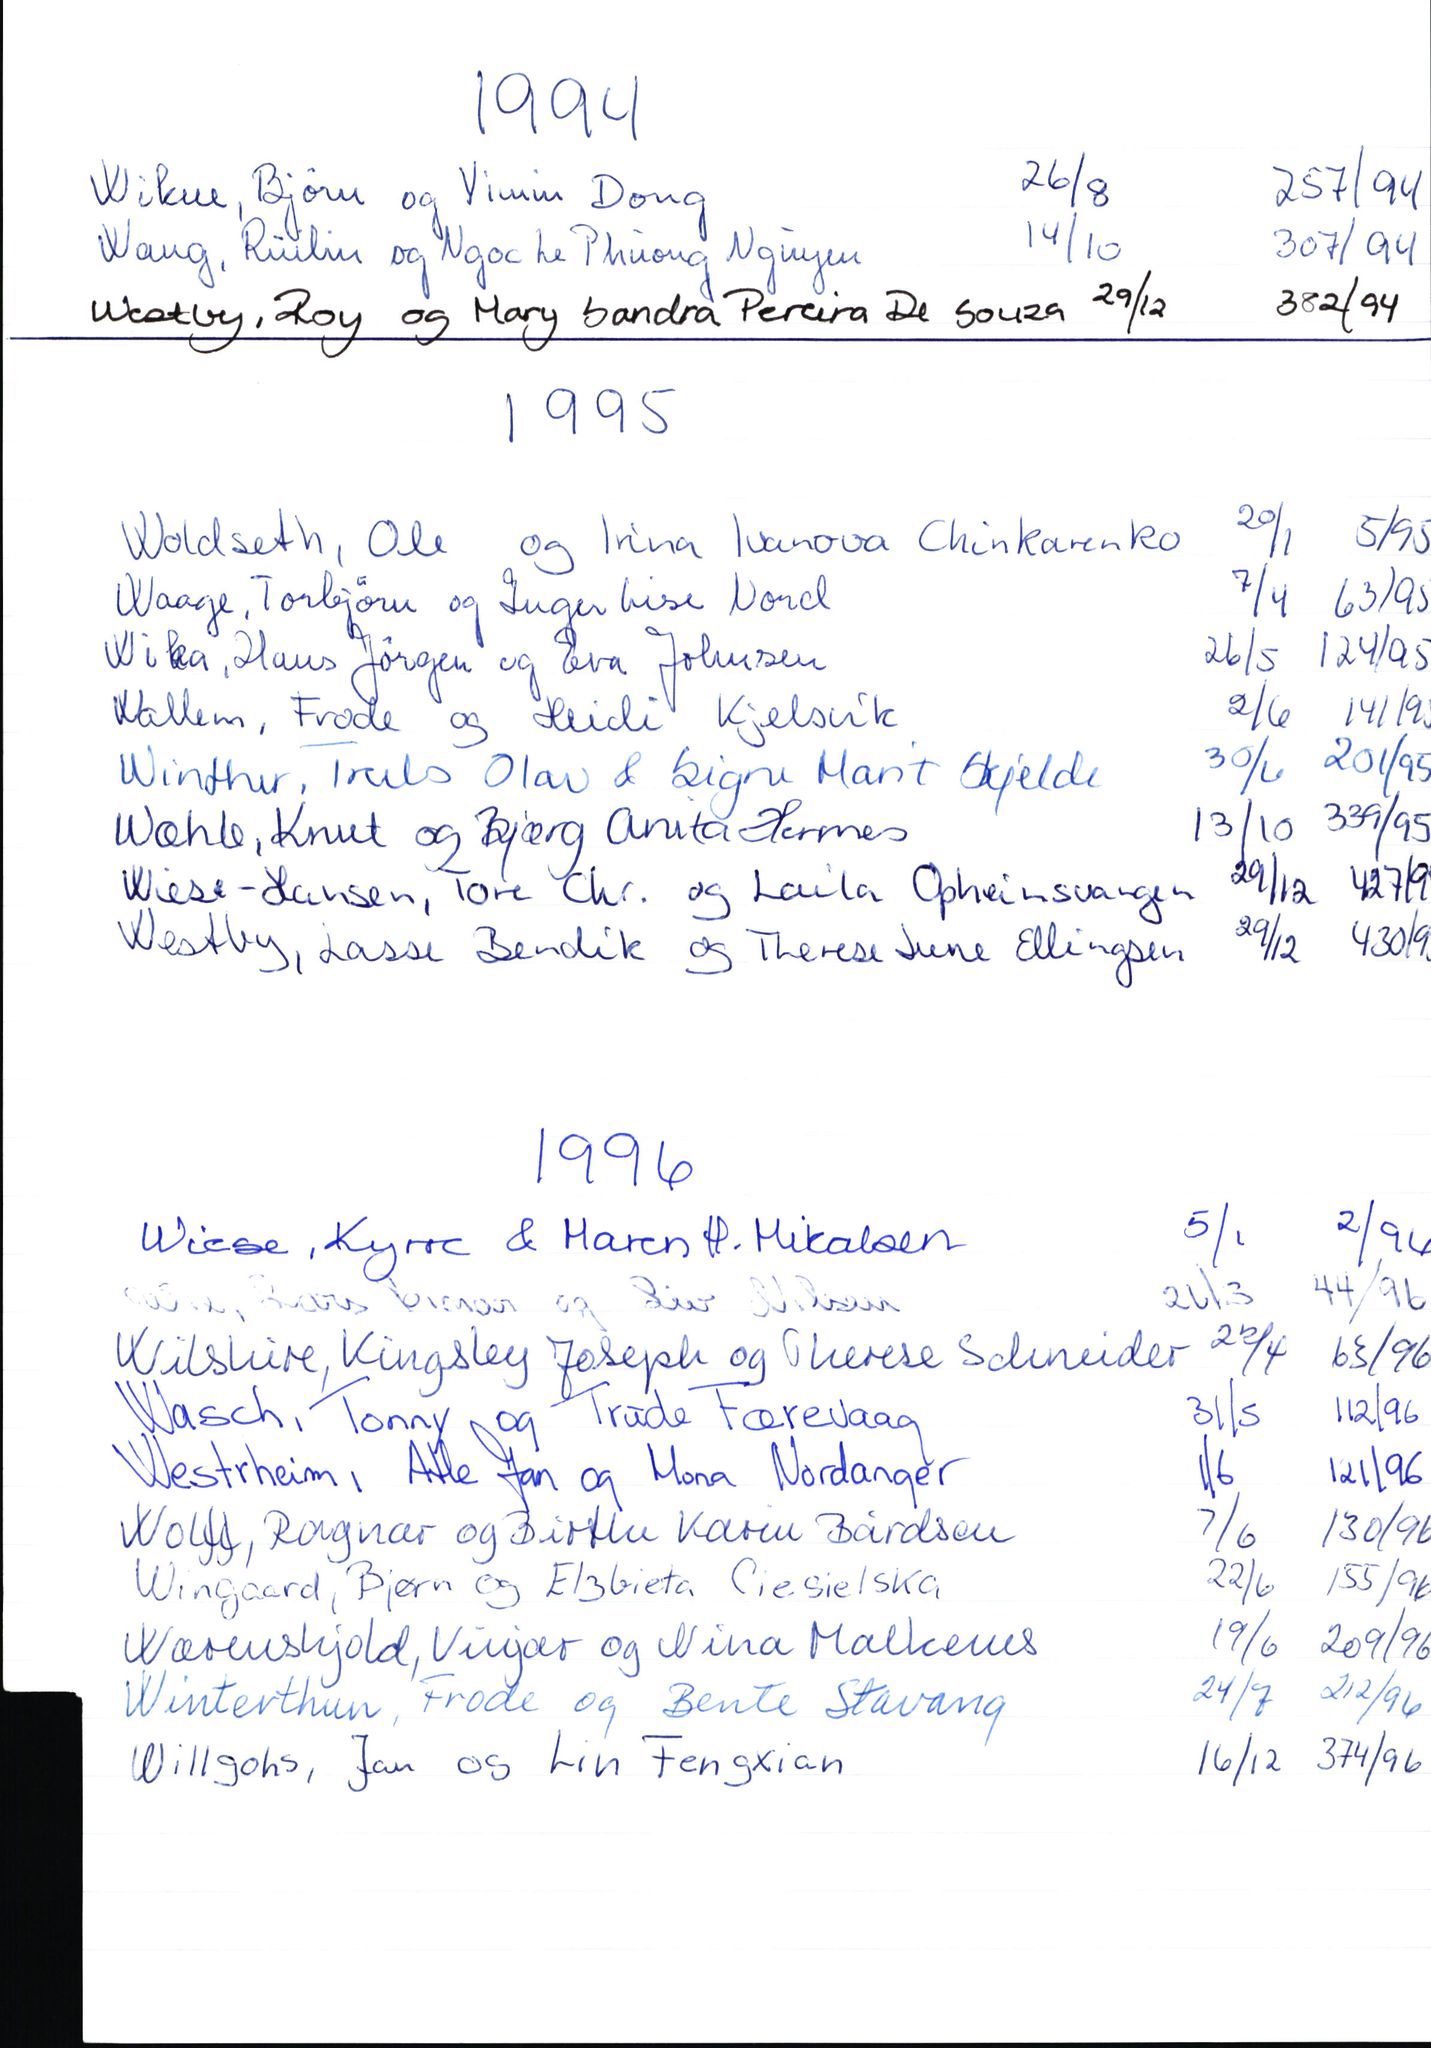 1994
Wikne, Björn og Yimin Dong 26/8 257/94
Wang, Ruilin og Ngoc Le Phuong Nguyen 14/10 307/94
Westby, Roy og Mary Sandra Pereira De Souza 29/12 382/94
1995
Woldseth, Ole og Irina Ivanova Chinkarenko 20/1 5/95
Waage, Torbjörn og Inger Lise Nord 7/4 63/95
Wika, Hans Jörgen og Eva Johnsen 26/5 124/95
Wallem, Frode og Heidi Kjelsvik 2/6 141/95
Winther, Truls Olav & Signe Marit Skjelde 30/6 201/95
Wæhle, Knut og Bjørg Anita Hermes 13/10 339/95
Wiese-Hansen, Tore Chr. og Laila Opheimsvangen 29/12 427/9
Westby, Lasse Bendik og Therese Lune Ellingsen 29/12 430/9
1996
Wiese, Kyrre & Maren H. Mikalsen 5/1 2/96
Lars og Liv Nilsen 44/96
Wilshire, Kingsley Joseph og Therese Schneider 63/96
Wasch, Tonny og Trude Færevaag 31/5 112/96
Westrheim, Atle Jan og Mona Nordanger 1/6 121/96
Wolff, Ragnar og Birthe Karin Bårdsen 7/6 130/96
Wingaard, Bjørn og Elzbieta Ciesielska 22/6 155/96
Wærenskjold, Vinjar og Nina Malkenes 19/6 209/96
Winterthun, Frode og Bente Stavang 24/7 212/96
Willgohs, Jan og Lin Fengxian 16/12 374/96